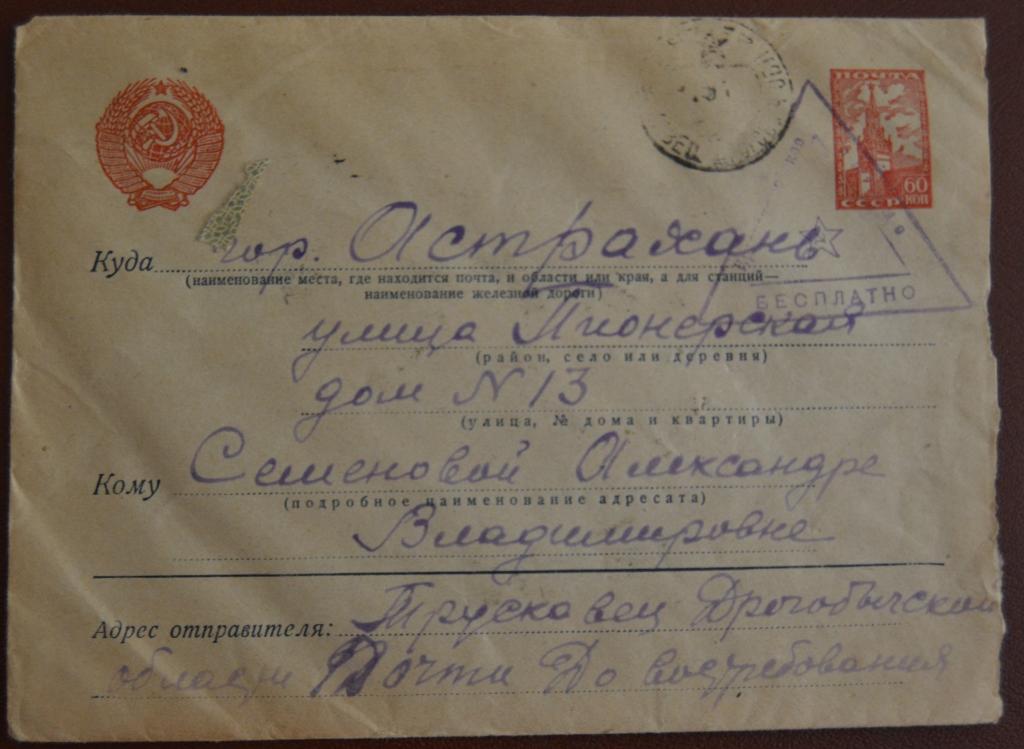 ПОЧТА
60
КОП
СССР
БЕСПЛАТНО
Куда гор. Астрахань
(наименование места, где находится почта, и области или края, а для станций—
наименование железной дороги)
улица Пионерской
(район, село или деревня)
дом N 13
(улица, № дома и квартиры)
Кому Семеновой Александре
(подробное наименование адресата)
Владимировне
Адрес отправителя: Трускавец Дрогобычской
области Почти До востребования